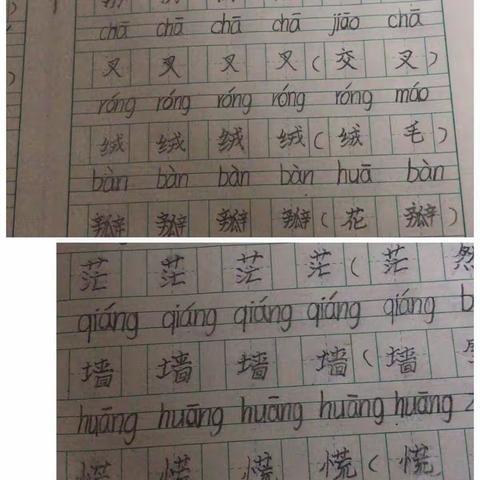 chā chā chā chā jiāo chā
叉 叉 叉 叉 ( 交 叉 )
róng róng róng róng róng máo
绒 绒 绒 绒 ( 绒 毛 )
bàn bàn bàn bàn huā bàn
瓣 瓣 瓣 瓣 ( 花 瓣 )
茫 茫 茫 茫 ( 茫 然
qiáng qiáng qiáng qiáng qiáng b
墙 墙 墙 墙 ( 墙
huāng huāng huāng huāng huāng z
慌 慌 慌 慌 ( 慌